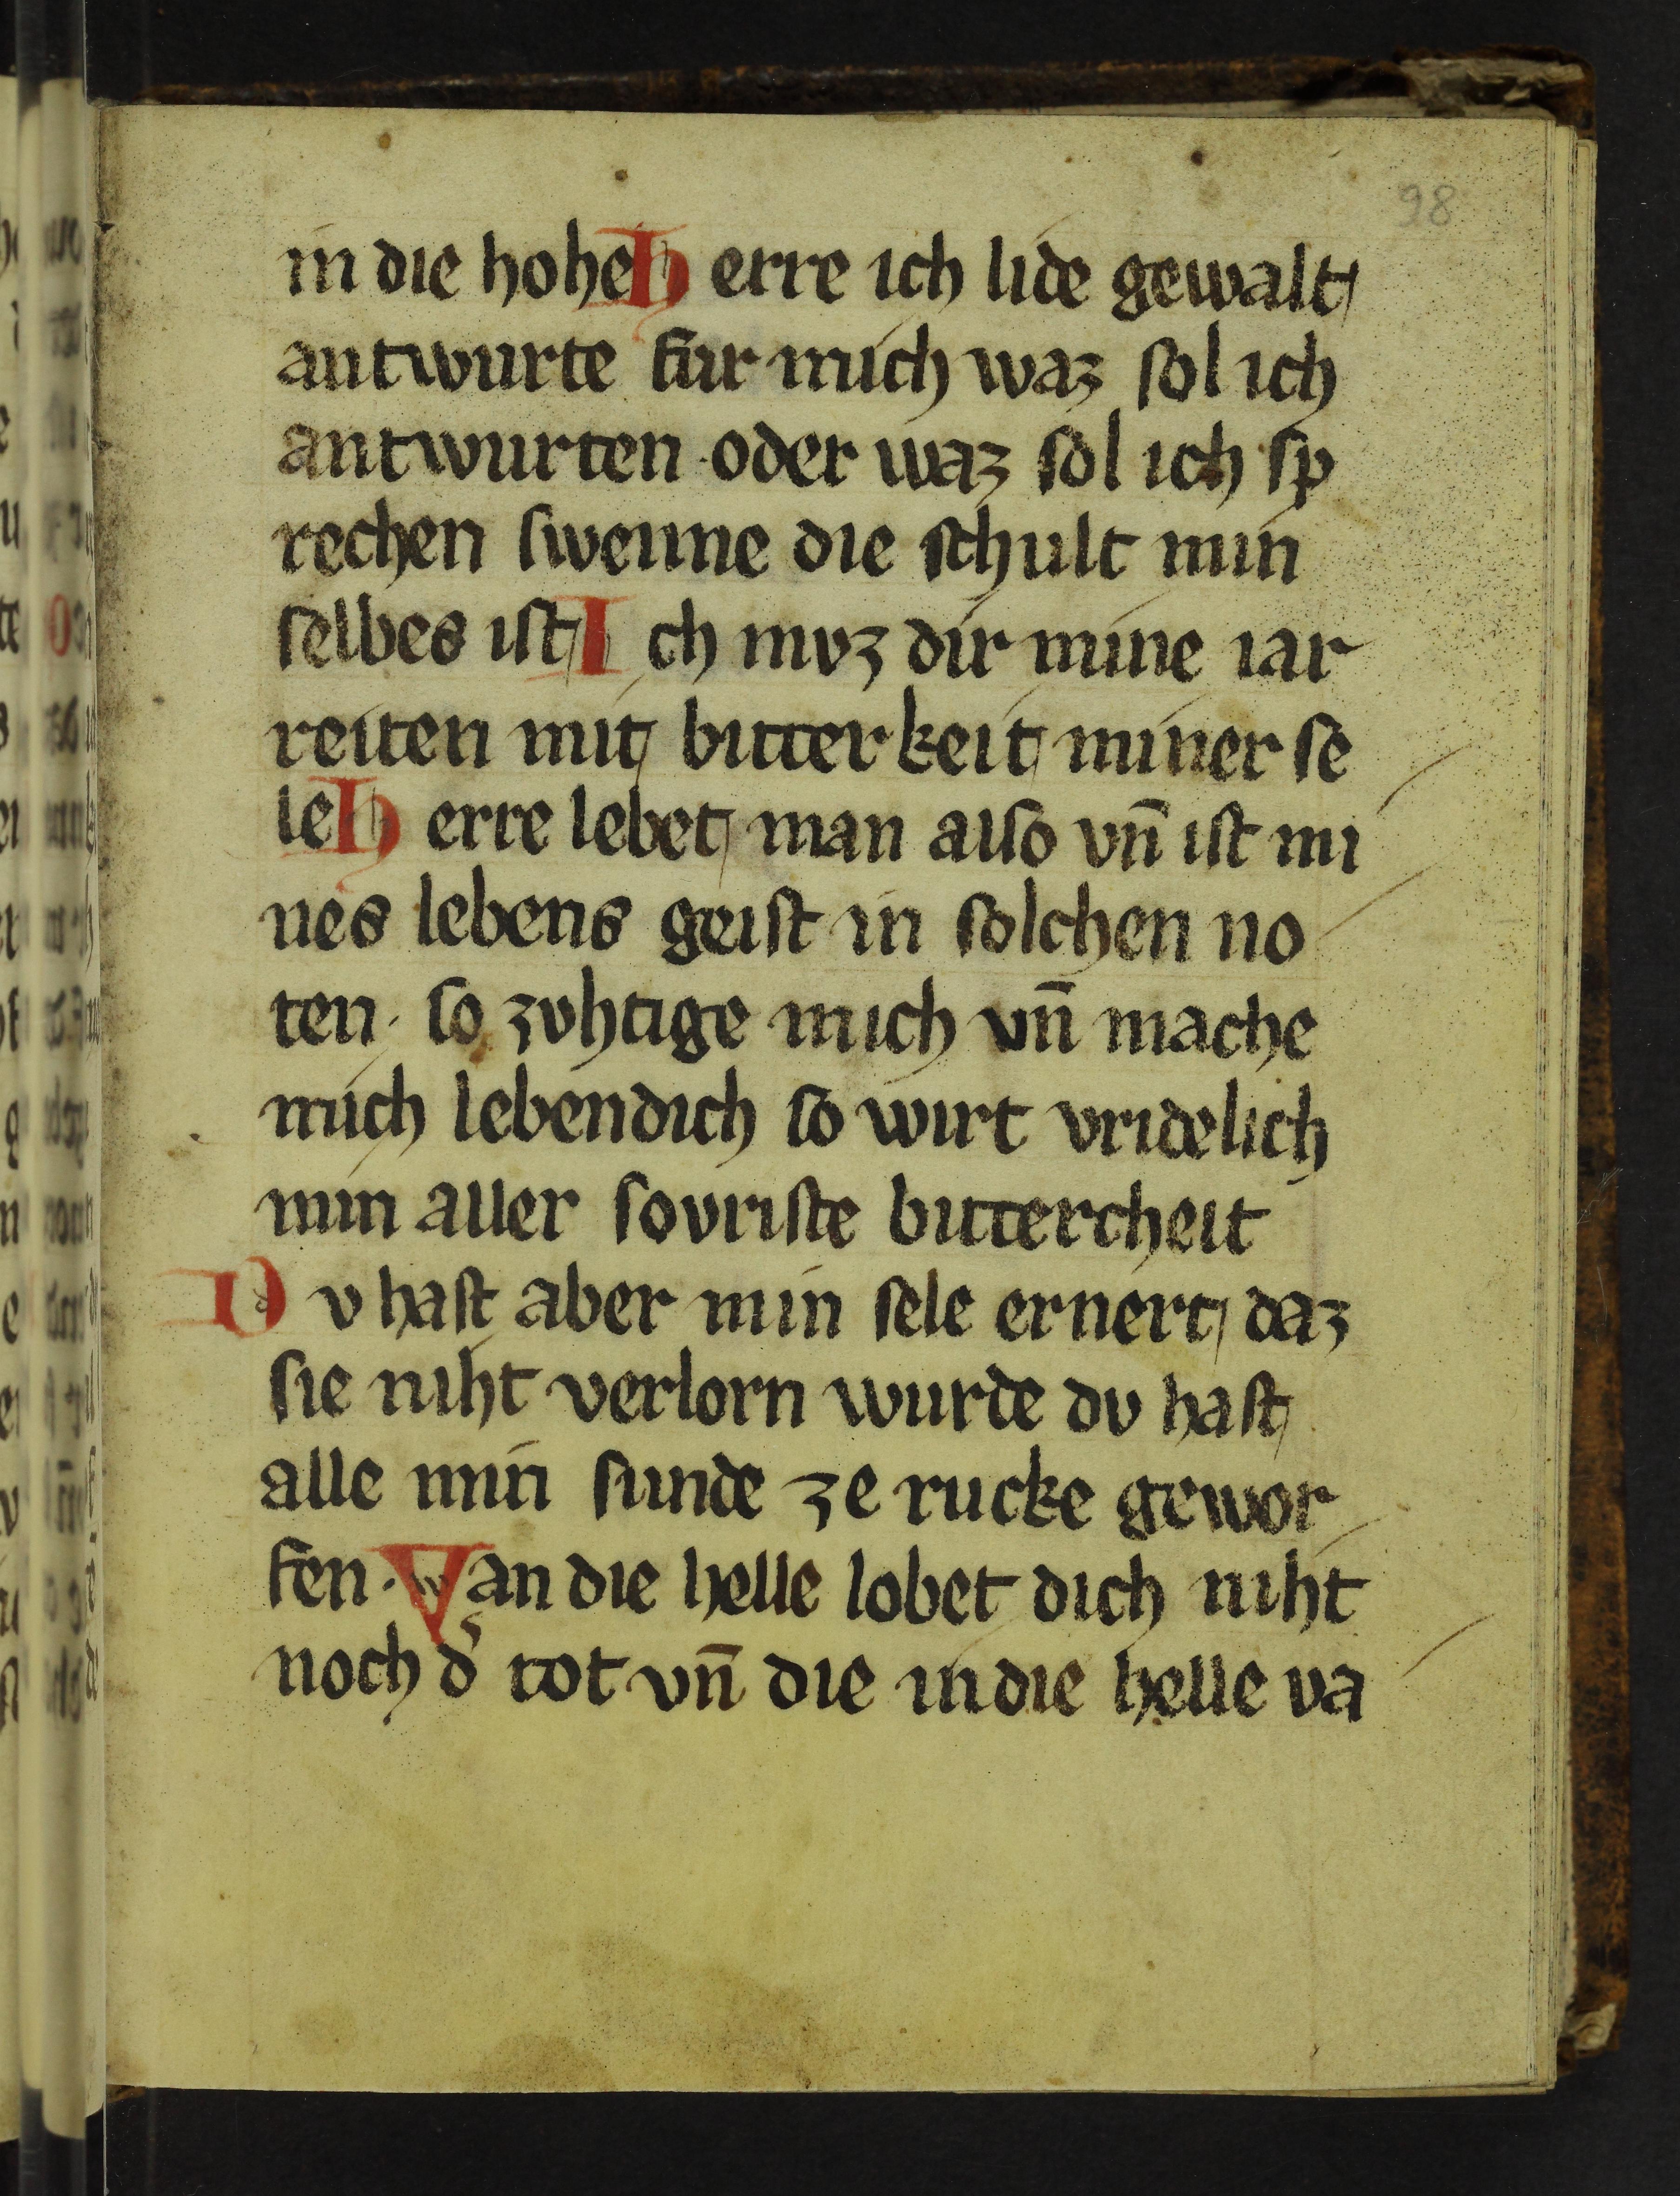 98
in die hohe Herre ich lide gewalt
antwurte fur mich waz sol ich
antwurten · oder waz sol ich sp
rechen swenne die schult min
selbes ist Ich mvz dir mine iar
reiten mit bitterkeit miner se
le Herre lebet man also vn̄ ist mi
nes lebens geist in solchen no
ten · so zvhtige mich vn̄ mache
mich lebendich so wirt vridelich
min aller sovriste bittercheit
Dv hast aber min sele ernert daz
sie niht verlorn wurde dv hast
alle min sunde ze rucke gewor
fen · Wan die helle lobet dich niht
noch d͛ tot vn̄ die in die helle va